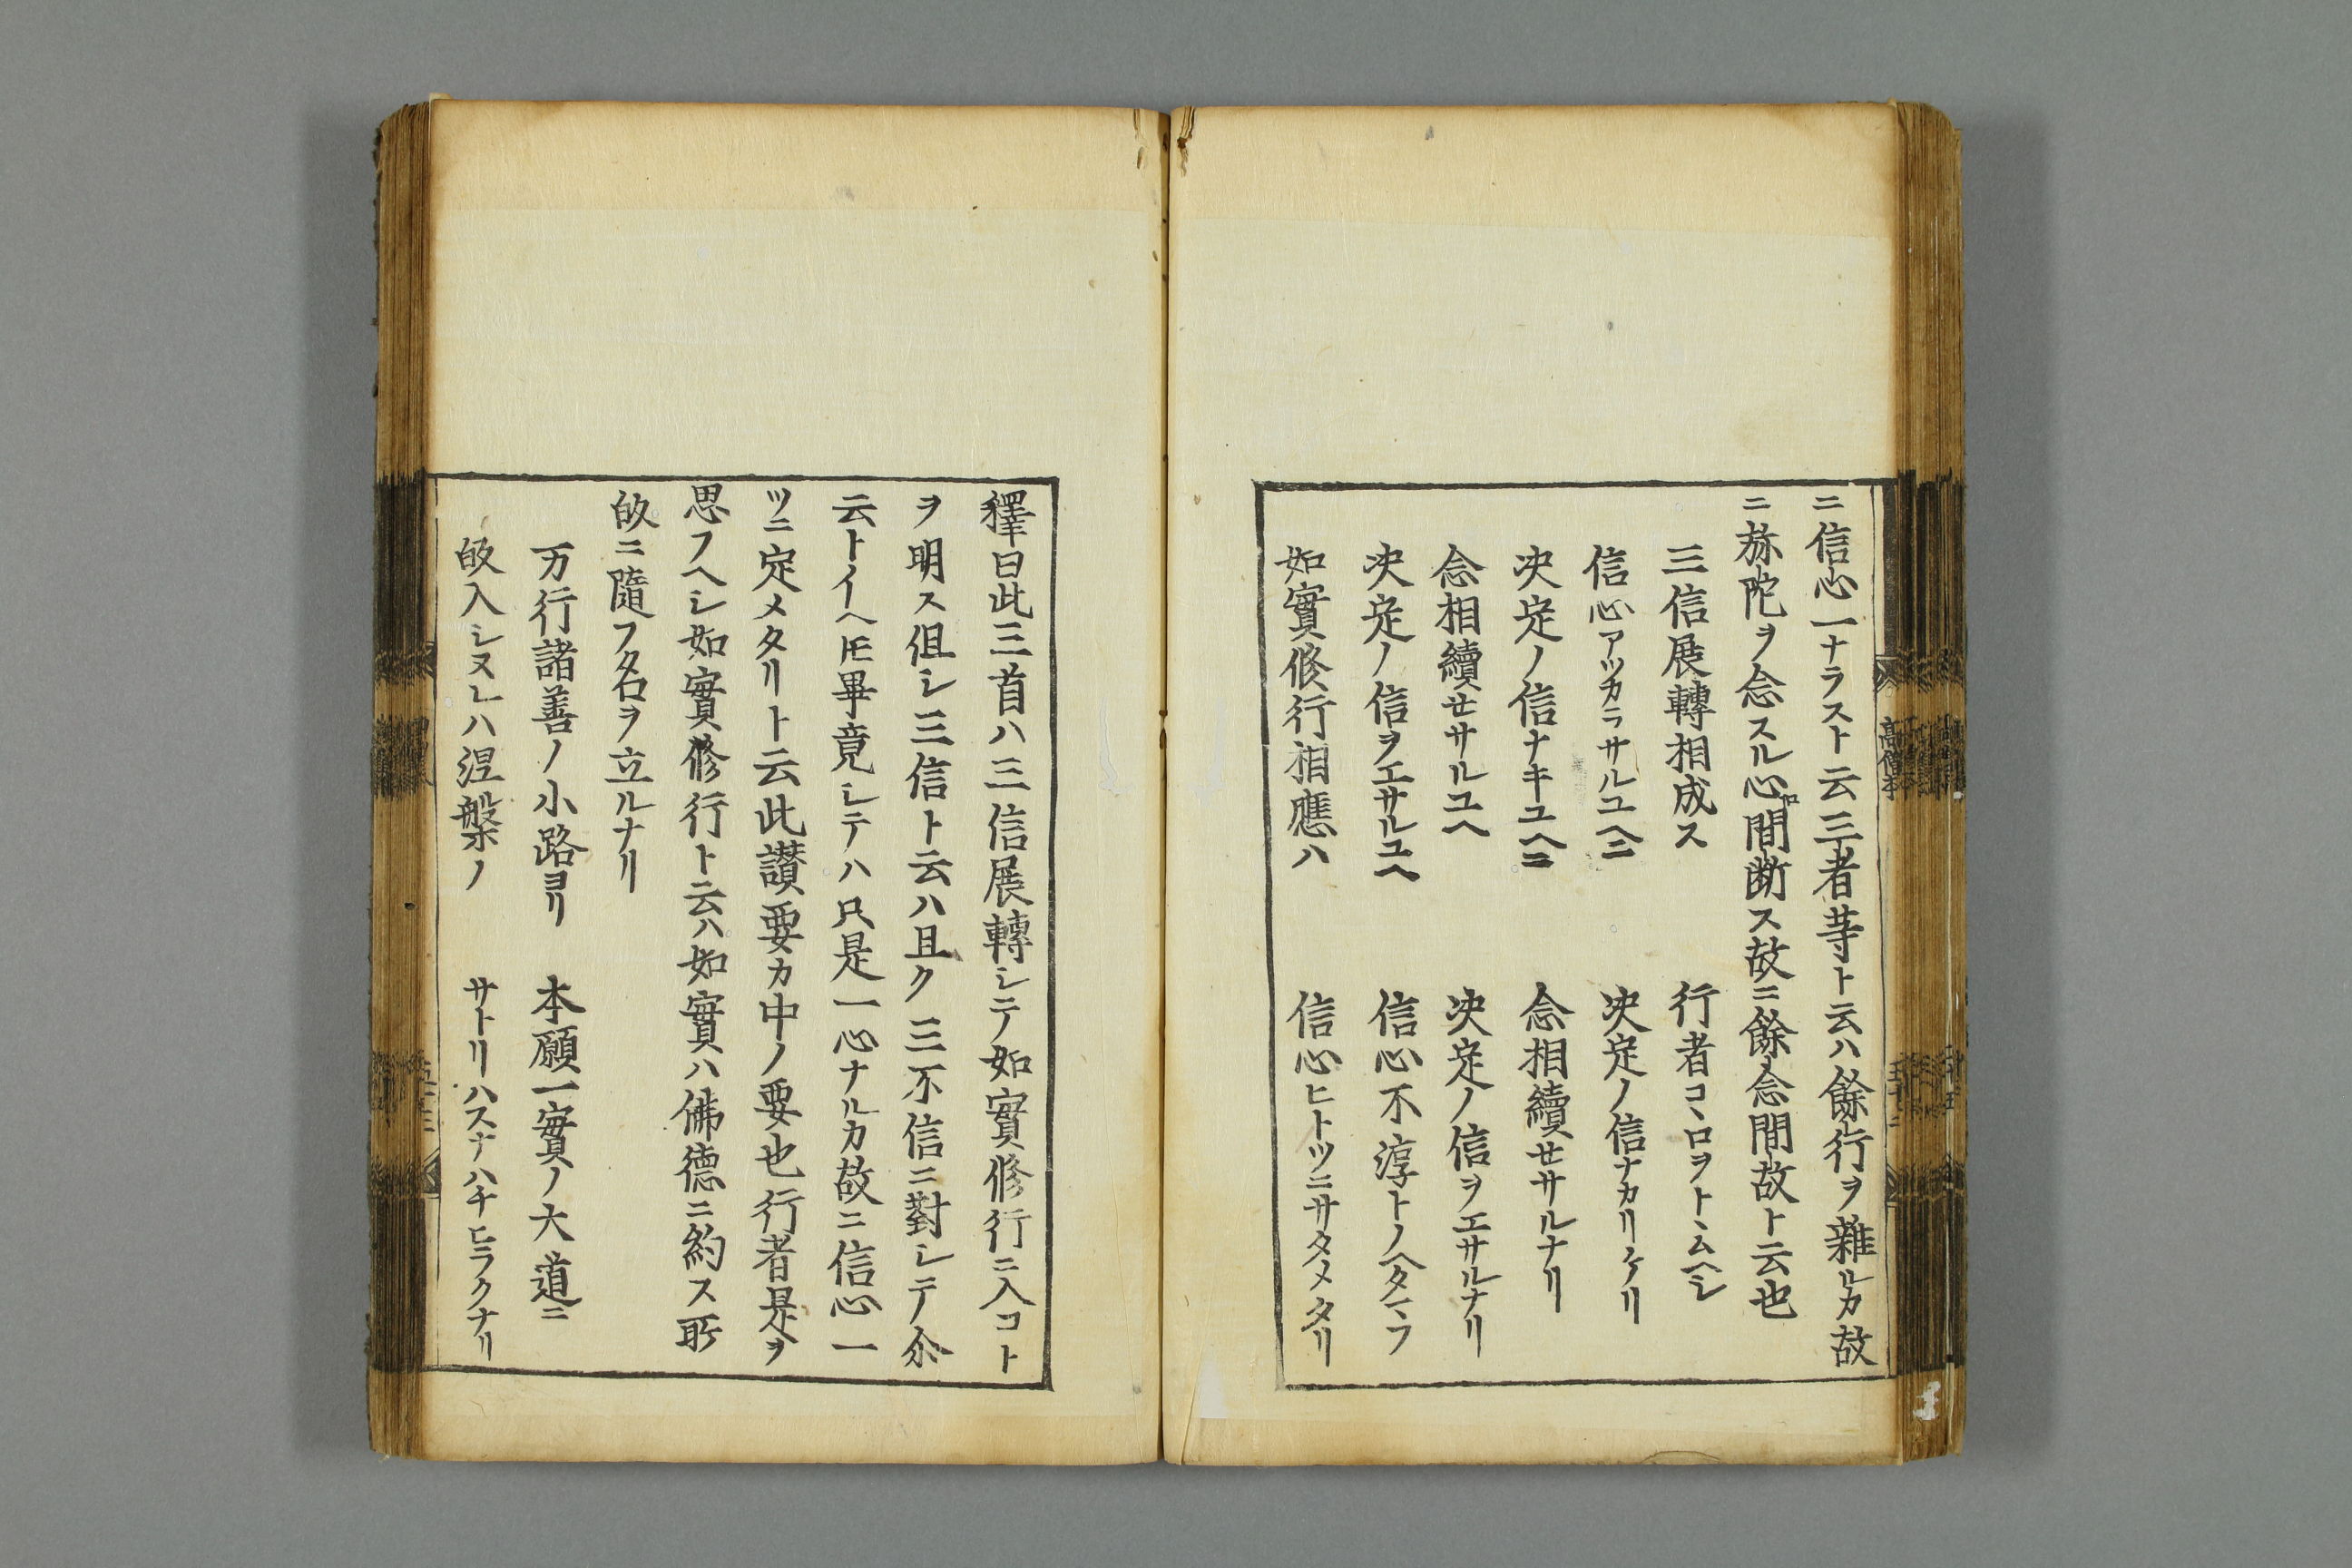 ニ信心一ナラスト云三者䓁ト云ハ餘行ヲ雜ルカ故
ニ弥陀ヲ念スル心間断ス故ニ餘念間故ト云也
三信展轉相成ス　行者コヽロヲトヽムヘシ
信心アツカラサルユヘニ　决定ノ信ナカリケリ
决定ノ信ナキユヘニ　念相續セサルナリ
念相續セサルユヘ　决定ノ信ヲエサルナリ
决定ノ信ヲエサルユヘ　信心不淳トノヘタマフ
如實修行相應ハ　信心ヒトツニサタメタリ
釋曰此三首ハ三信展轉シテ如實修行ニ入コト
ヲ明ス但シ三信ト云ハ且ク三不信ニ對シテ尒
云トイヘ𪜈畢竟シテハ只是一心ナルカ故ニ信心一
ツニ定メタリト云此讃要カ中ノ要也行者是ヲ
思フヘシ如實修行ト云ハ如實ハ佛德ニ約ス所
皈ニ隨フ名ヲ立ルナリ
万行諸善ノ小路ヨリ　本願一實ノ大道ニ
皈入シヌレハ涅槃ノ　サトリハスナハチヒラクナリ